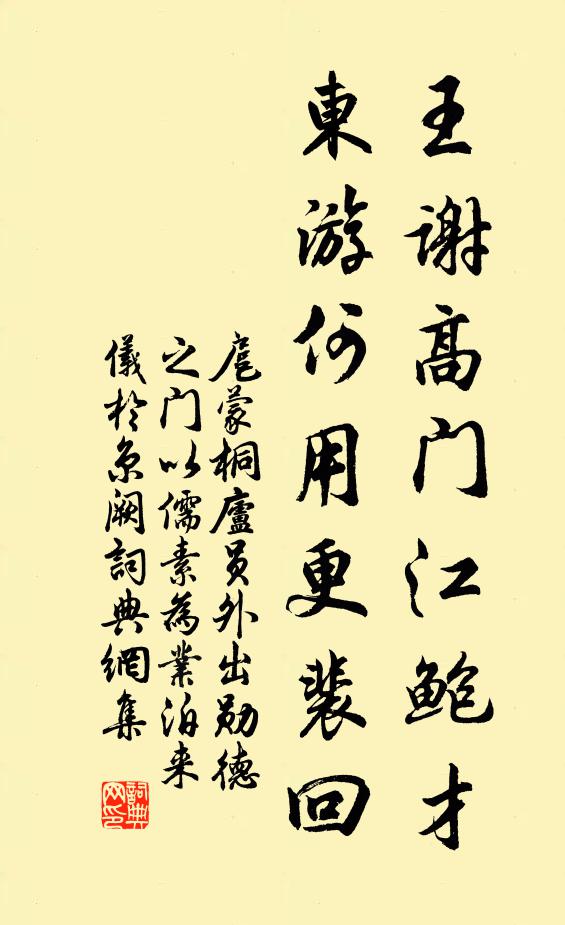 王謝高门江鮑才
東游何用更裴回
扈蒙桐廬員外出勋德
之门以儒素為業泊来
儀於京阙詞典網集
詞典
网印